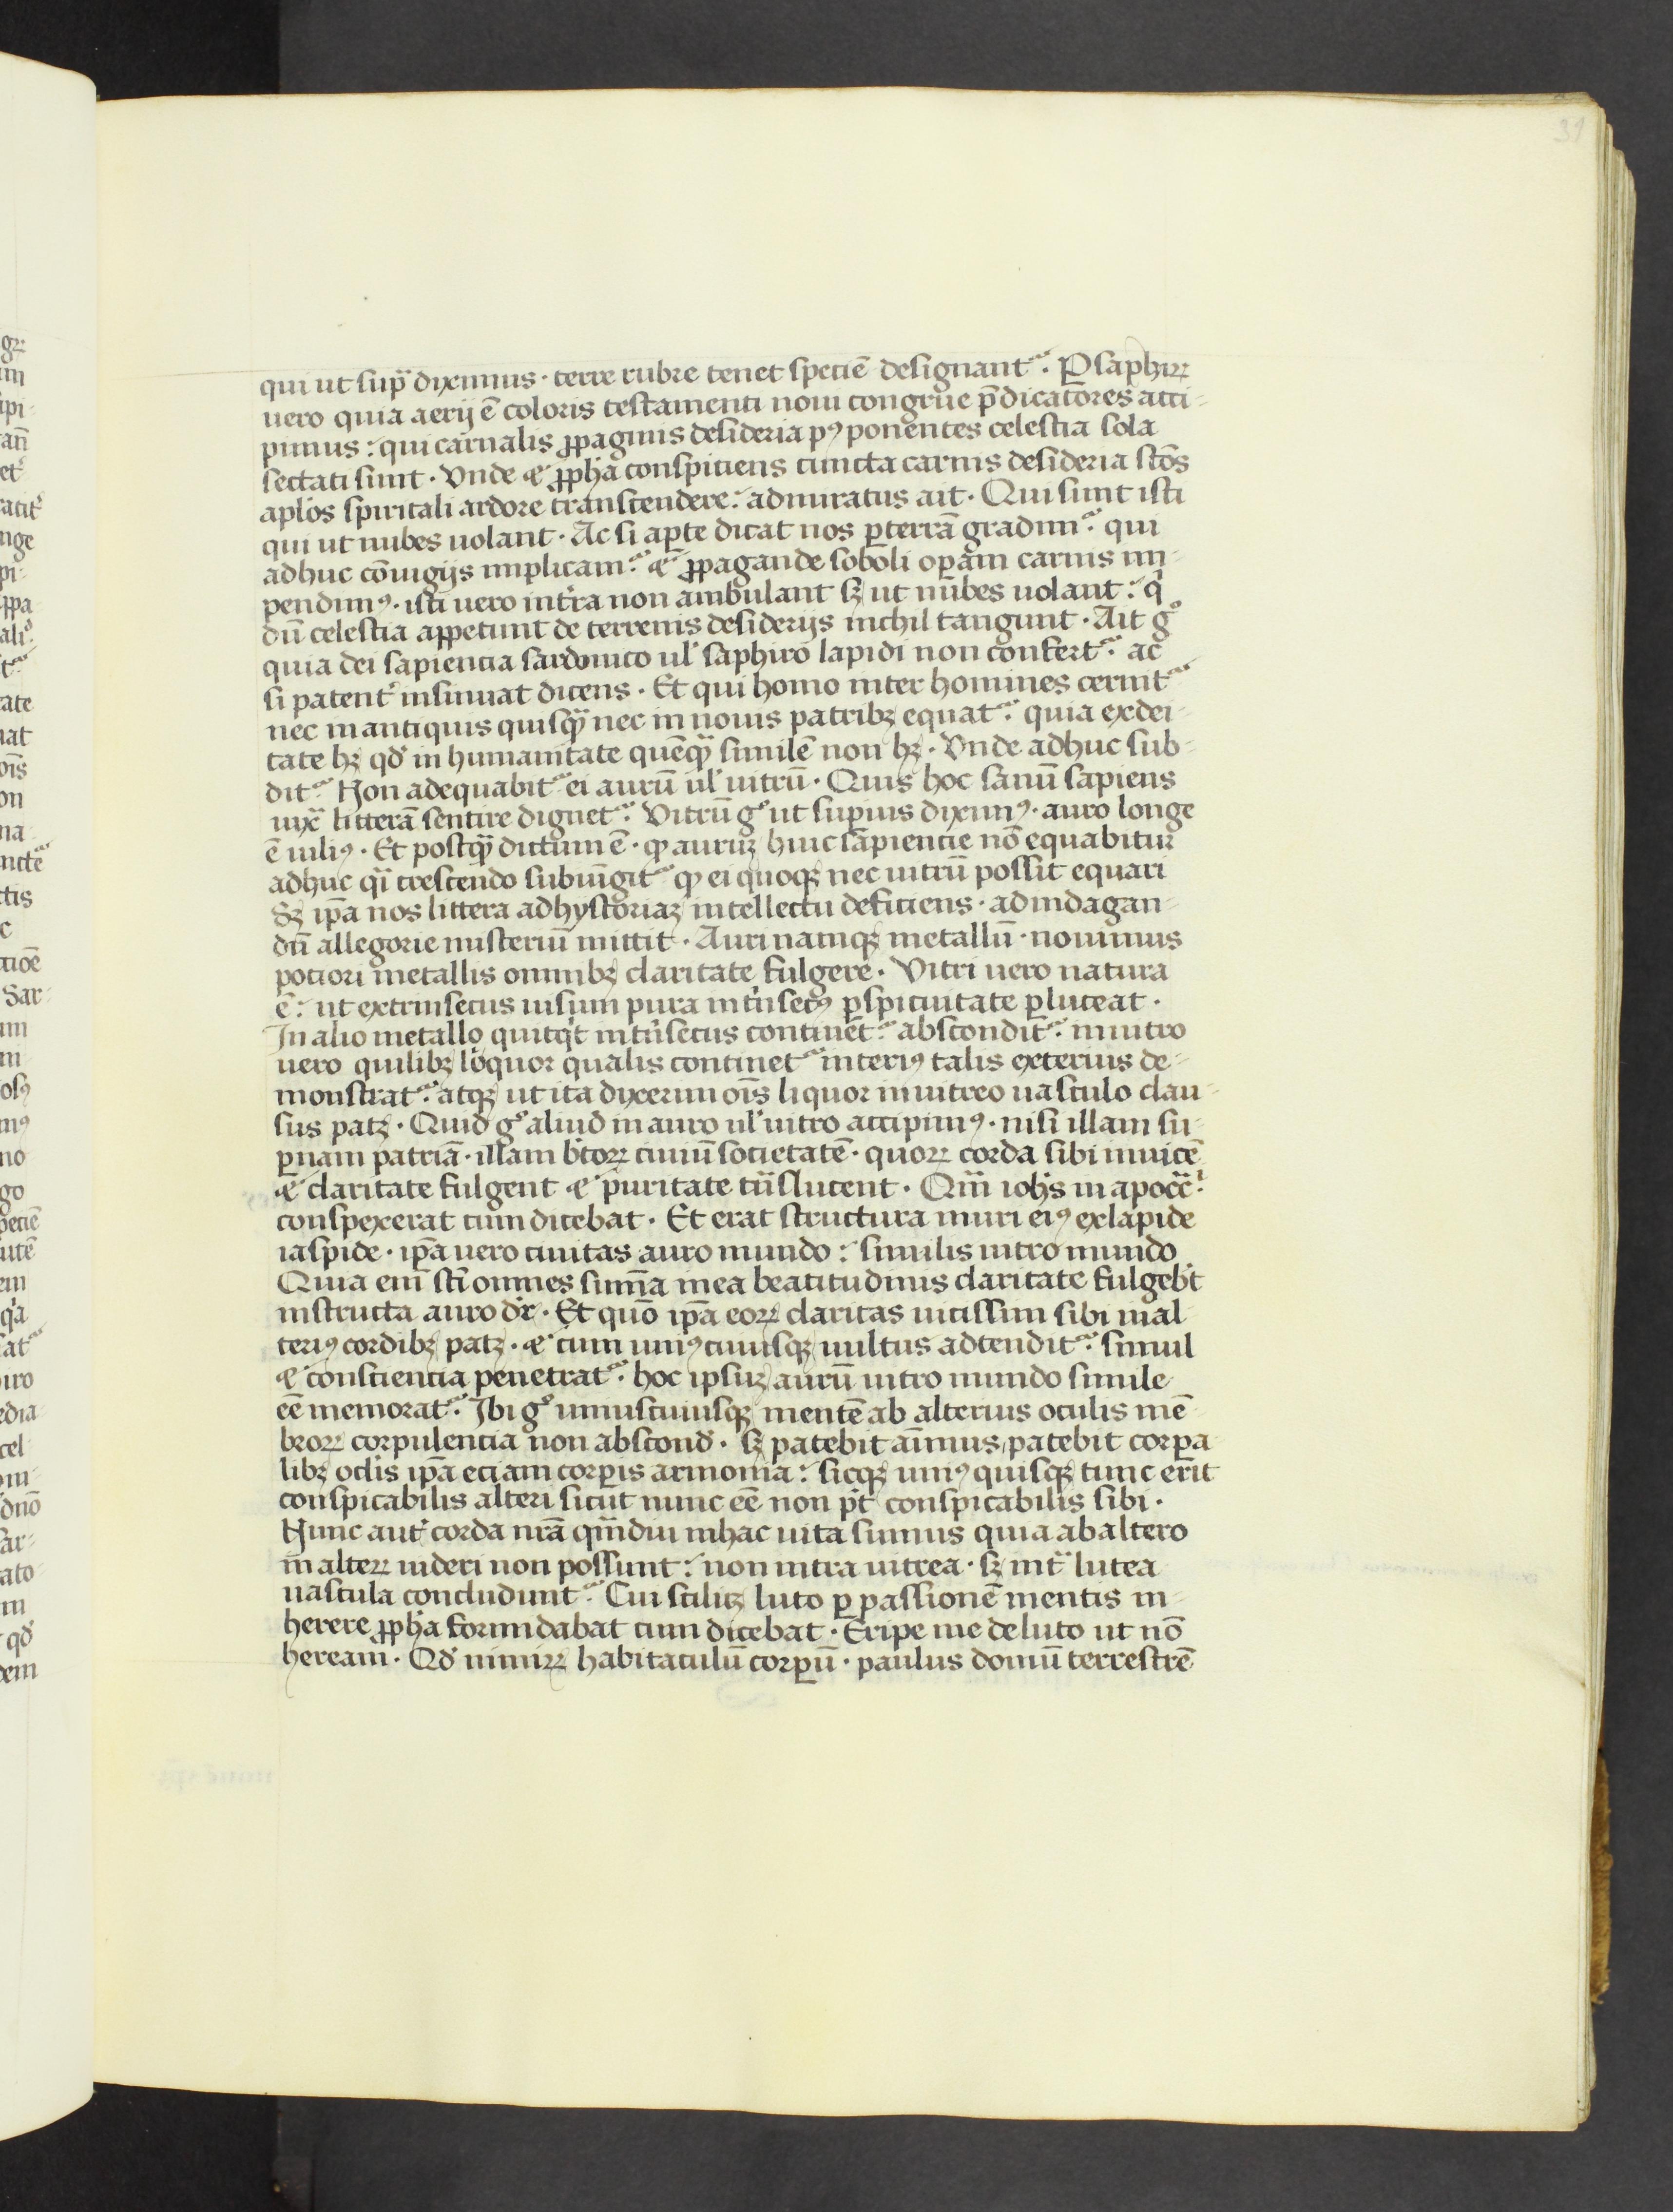 31
qui ut sup̃ diximus · terre rubre tenet speciē designantᷣ · P saphiꝝ
uero quia aerij ē coloris testamenti noui congrue p̄dicatores acci-
pimus : qui carnalis ꝓpaginis desideria pꝰponentes celestia sola
sectati sunt · Vnde ⁊ ꝓph̃a conspiciens cuncta carnis desideria sc̄os
apl̓os spiritali ardore transcendere : admiratus ait · Qui sunt isti
qui ut nubes uolant · Ac si aꝑte dicat nos ꝑ terrā gradimᷣ qui
adhuc cōiugijs implicamᷣ ⁊ ꝓpagande soboli oꝑam carnis im-
pendimꝰ · isti uero in tͬra non ambulant sꝫ ut nubes uolant : qͥ
dū celestia appetunt de terrenis desiderijs nichil tangunt · Ait gͦ
quia dei sapiencia sardonico ul̓ saphiro lapidi non confertᷣ ac
si patent̓ insinuat dicens · Et qui homo inter homines cernitᷣ
nec in antiquis quisqͣ nec in nouis patribꝫ equatᷣ quia ex dei-
tate hꝫ qd̓ in humanitate quēqͣ similē non hꝫ · Vnde adhuc sub-
ditᷣ Non adequabitᷣ ei aurū ul̓ uitrū · Quis hoc sanū sapiens
iuxͣ litterā sentire dignetᷣ Vitrū gͦ ut supius diximꝰ · auro longe
ē uiliꝰ · Et postqͣ dictum ē · ꝙ auruꝫ huic sapiencie nō equabitur
adhuc qͣi crescendo subiūgitᷣ ꝙ ei quoqꝫ nec uitrū possit equari
Sꝫ ip̄a nos littera ad hystoriaꝫ intellectu deficiens · ad indagan-
dū allegorie misteriū mittit · Auri namqꝫ metallū · nouimus
potiori metallis omnibꝫ claritate fulgere · Vitri uero natura
ē : ut extrinsecus uisum pura int̓nsecꝰ ꝑspicuitate ꝑluceat ·
In alio metallo quicqͥt int̓nsecus continetᷣ absconditᷣ in uitro
uero quilibꝫ liquor qualis continetᷣ interiꝰ talis exterius de-
monstratᷣ atqꝫ ut ita dixerim oīs liquor in uitreo uasculo clau-
sus patꝫ · Quid gͦ aliud in auro ul̓ uitro accipimꝰ · nisi illam su-
ꝑnam patriā · illam b̓toꝝ ciuiū societatē · quoꝝ corda sibi inuicē
⁊ claritate fulgent ⁊ puritate tͣnslucent · Qͣm ioh̓s in apocͨ
conspexerat cum dicebat · Et erat structura muri eiꝰ ex lapide
iaspide · ip̄a uero ciuitas auro mundo : similis uitro mundo
Quia eni̅ sc̄i omnes sum̄a in ea beatitudinis claritate fulgeb̓t
instructa auro dr̄ · Et quō ip̄a eoꝝ claritas uicissim sibi in al-
teriꝰ cordibꝫ patꝫ · ⁊ cum uniꝰcuiusqꝫ uultus adtenditᷣ simul
⁊ consciencia penetratᷣ · hoc ipsuꝫ aurū uitro mundo simile
eē memoratᷣ Ibi gͦ uniuscuiusqꝫ mentē ab alterius oculis mē-
broꝝ corpulencia non abscond̓ · sꝫ patebit aīmus, patebit corꝑa-
libꝫ ocl̓is ip̄a eciam corꝑis armonia : sicqꝫ unꝰquisqꝫ tunc erit
conspicabilis alteri sicut nunc eē non pͦt conspicabilis sibi ·
Nunc aut̓ corda nr̄a qͣmdiu in hac uita sumus quia ab altero
in alteꝝ uideri non possunt : non intra uitrea · sꝫ intͣ lutea
uascula concluduntᷣ Cui scilicꝫ luto ꝑ passionē mentis in-
herere ꝓph̃a formidabat cum dicebat · Eripe me de luto ut nō
heream · Qd̓ nimiꝝ habitaculū corꝑū · paulus domū terrestrē